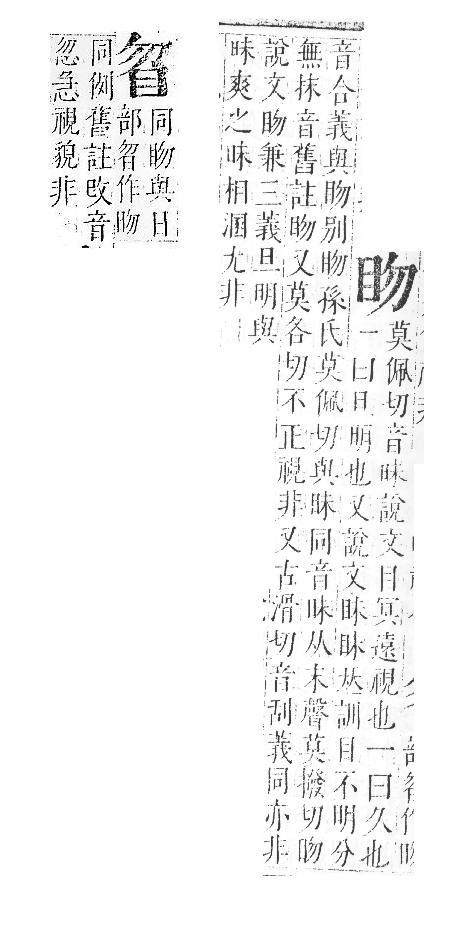 䀛莫佩切音眛說文目冥遠視也一曰久也
一曰旦明也又說文眛眜𠀤訓目不明分
音合義與䀛別䀛孫氏莫佩切與眛同音眜从末聲莫撥切䀛
無抹音舊註䀛又莫各切不正視非又古滑切音刮義同亦非
說文䀛兼三義旦明與
昧爽之昧相溷尤非
同䀛與日
部曶作昒
同例舊註改音
忽急視貌非